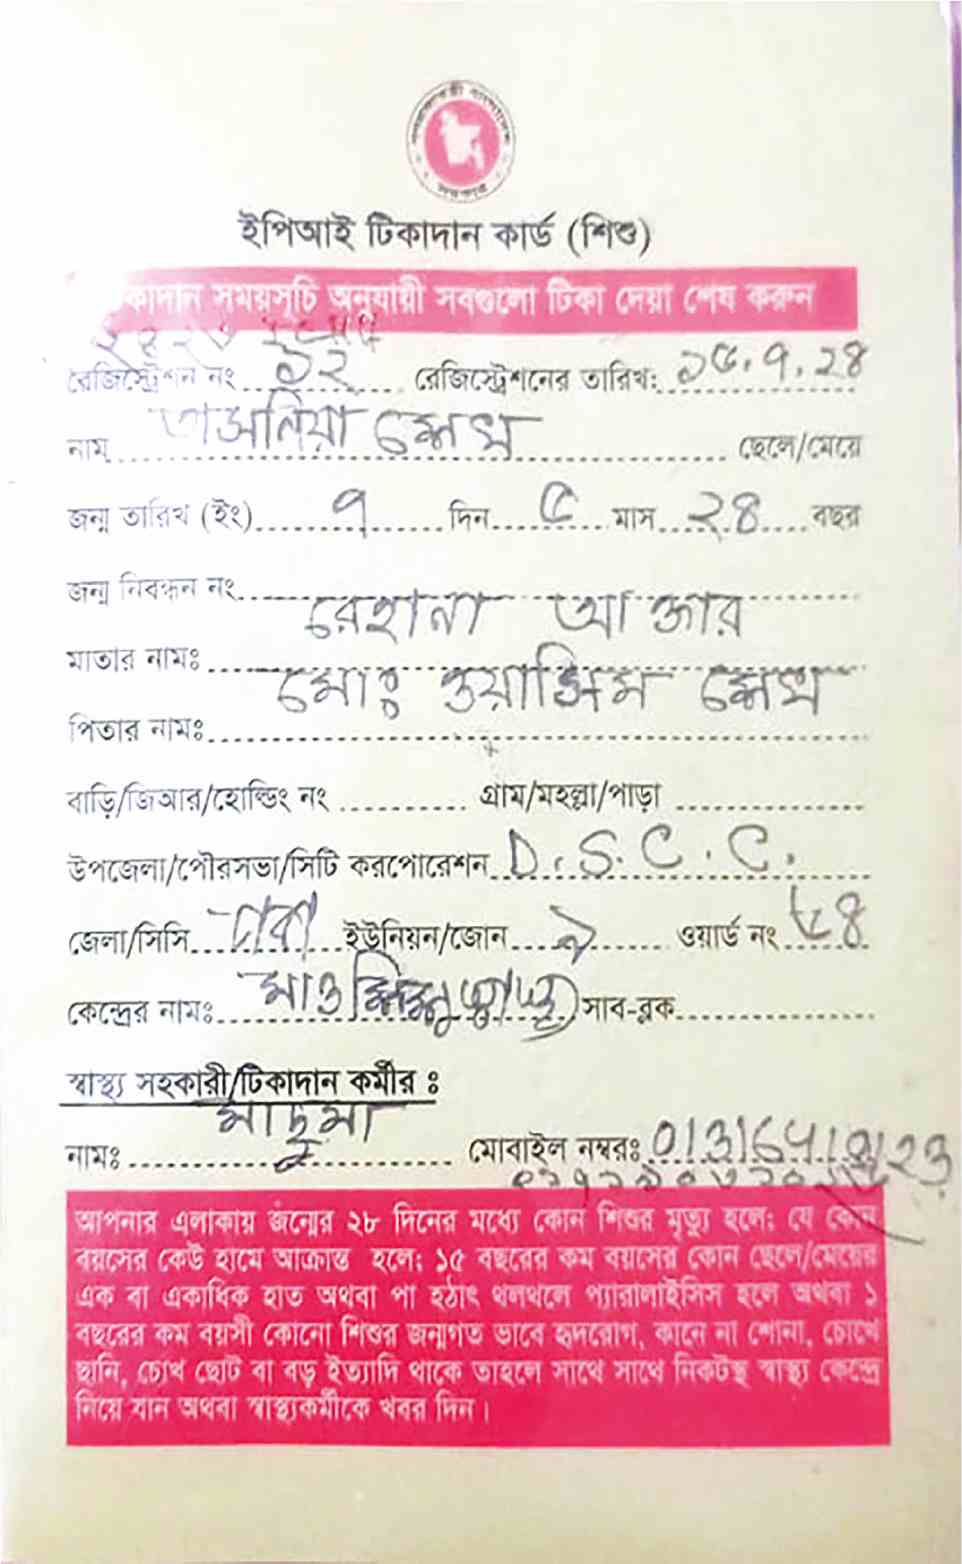 গণপ্রজাতন্ত্রী বাংলাদেশ সরকার
ইপিআই টিকাদান কার্ড (শিশু)
টিকাদান সময়সূচি অনুযায়ী সবগুলো টিকা দেয়া শেষ করুন
রেজিস্ট্রেশন নং ১২ রেজিস্ট্রেশনের তারিখ: ১৫.৭.২৪
নাম তাসনিয়া শেখ ছেলে/মেয়ে
জন্ম তারিখ (ইং) ৭ দিন ৫ মাস ২৪ বছর
জন্ম নিবন্ধন নং
মাতার নামঃ রেহানা আক্তার
পিতার নামঃ মোঃ ওয়াসিম শেখ
বাড়ি/জিআর/হোল্ডিং নং গ্রাম/মহল্লা/পাড়া
উপজেলা/পৌরসভা/সিটি করপোরেশন D.S.C.C.
জেলা/সিসি ঢাকা ইউনিয়ন/জোন ওয়ার্ড নং
কেন্দ্রের নামঃ সাব-ব্লক
স্বাস্থ্য সহকারী/টিকাদান কর্মীর ঃ
নামঃ মোবাইল নম্বরঃ
আপনার এলাকায় জন্মের ২৮ দিনের মধ্যে কোন শিশুর মৃত্যু হলে; যে কোন
বয়সের কেউ হামে আক্রান্ত হলে; ১৫ বছরের কম বয়সের কোন ছেলে/মেয়ের
এক বা একাধিক হাত অথবা পা হঠাৎ থলথলে প্যারালাইসিস হলে অথবা ১
বছরের কম বয়সী কোনো শিশুর জন্মগত ভাবে হৃদরোগ, কানে না শোনা, চোখে
ছানি, চোখ ছোট বা বড় ইত্যাদি থাকে তাহলে সাথে সাথে নিকটস্থ স্বাস্থ্য কেন্দ্রে
নিয়ে যান অথবা স্বাস্থ্যকর্মীকে খবর দিন।